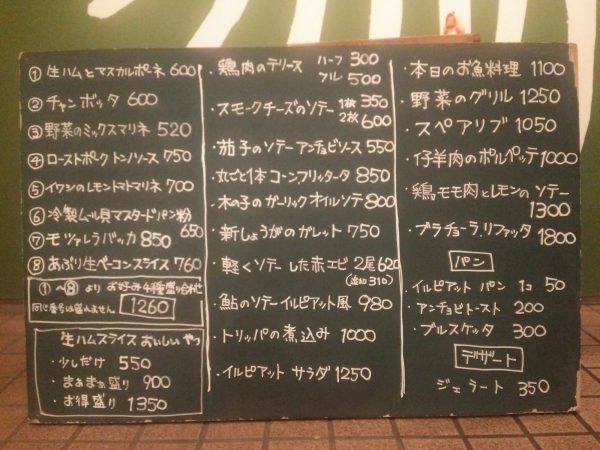 ① 生ハムとマスカルポーネ 600
② チャンボッタ 600
③ 野菜のミックスマリネ 520
④ ローストポーク トンノソース 750
⑤ イワシのレモントマトマリネ 700
⑥ 冷製ムール貝マスタードパン粉 650
⑦ モツァレラバッカ 850
⑧ あぶり生ベーコンスライス 760
①〜⑧より お好み4種盛合わせ
同じ番号は盛れません 1260
生ハムスライス おいしいやつ
・少しだけ 550
・まぁまぁ盛り 900
・お得盛り 1350
・鶏肉のテリーヌ ハーフ 300
フル 500
・スモークチーズのソテー 1枚 350
2枚 600
・茄子のソテーアンチョビソース 550
・丸ごと1本コーンフリッタータ 850
・木の子のガーリックオイルソテ 800
・新しょうがのガレット 750
・軽くソテーした赤エビ 2尾 620
(追加310)
・鮎のソテーイルピアット風 980
・トリッパの煮込み 1000
・イルピアット サラダ 1250
・本日のお魚料理 1100
・野菜のグリル 1250
・スペアリブ 1050
・仔羊肉のポルペッテ 1000
・鶏モモ肉とレモンのソテー
1300
・ブラチョーラ.リファッタ 1800
パン
・イルピアット パン 1コ 50
・アンチョビトースト 200
・ブルスケッタ 300
デザート
ジェラート 350